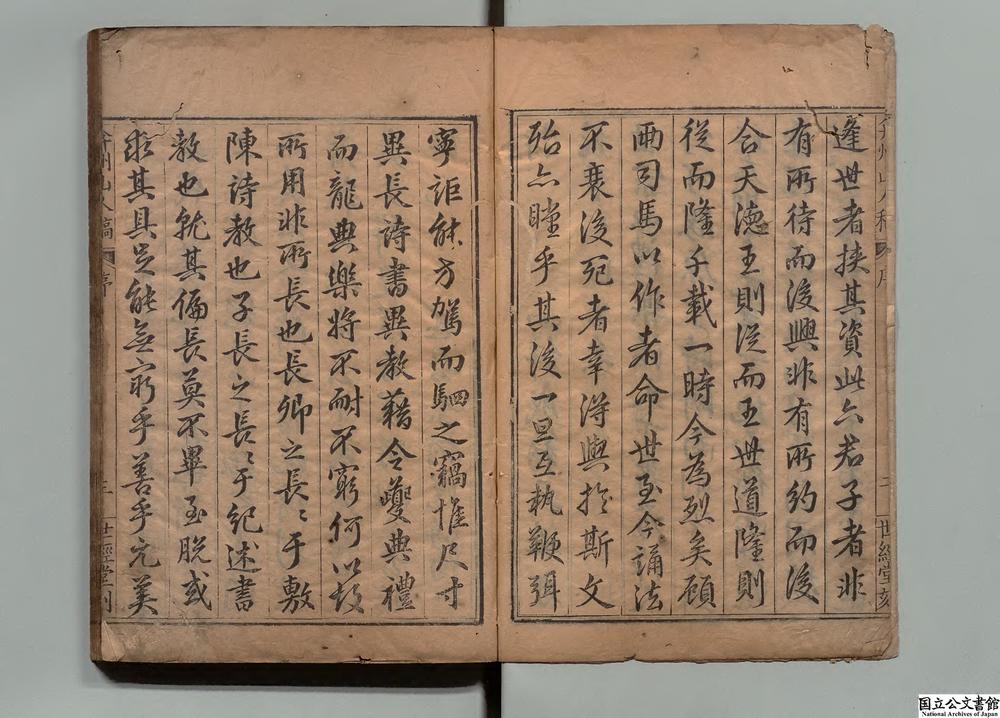 弇州山人稿 序 二 世經堂刻
逢世者挾其資此六君子者非
有所待而後興非有所約而後
合天德王則從而王世道隆則
從而隆千載一時今為烈矣顧
兩司馬以作者命世至今誦法
不衰後死者幸得與於斯文
殆亦瞠乎其後一旦互執鞭弭
寧詎能方駕而駟之竊惟尺寸
異長詩書異教藉令夔典禮
而龍典樂將不耐不窮何以故
所用非所長也長卿之長〻于敷
陳詩教也子長之長〻于紀述書
教也就其偏長莫不畢至脫或
求其具足能無窮乎善乎元美
弇州山人稿 序 三 世經堂刻
国立公文書館
National Archives of Japan